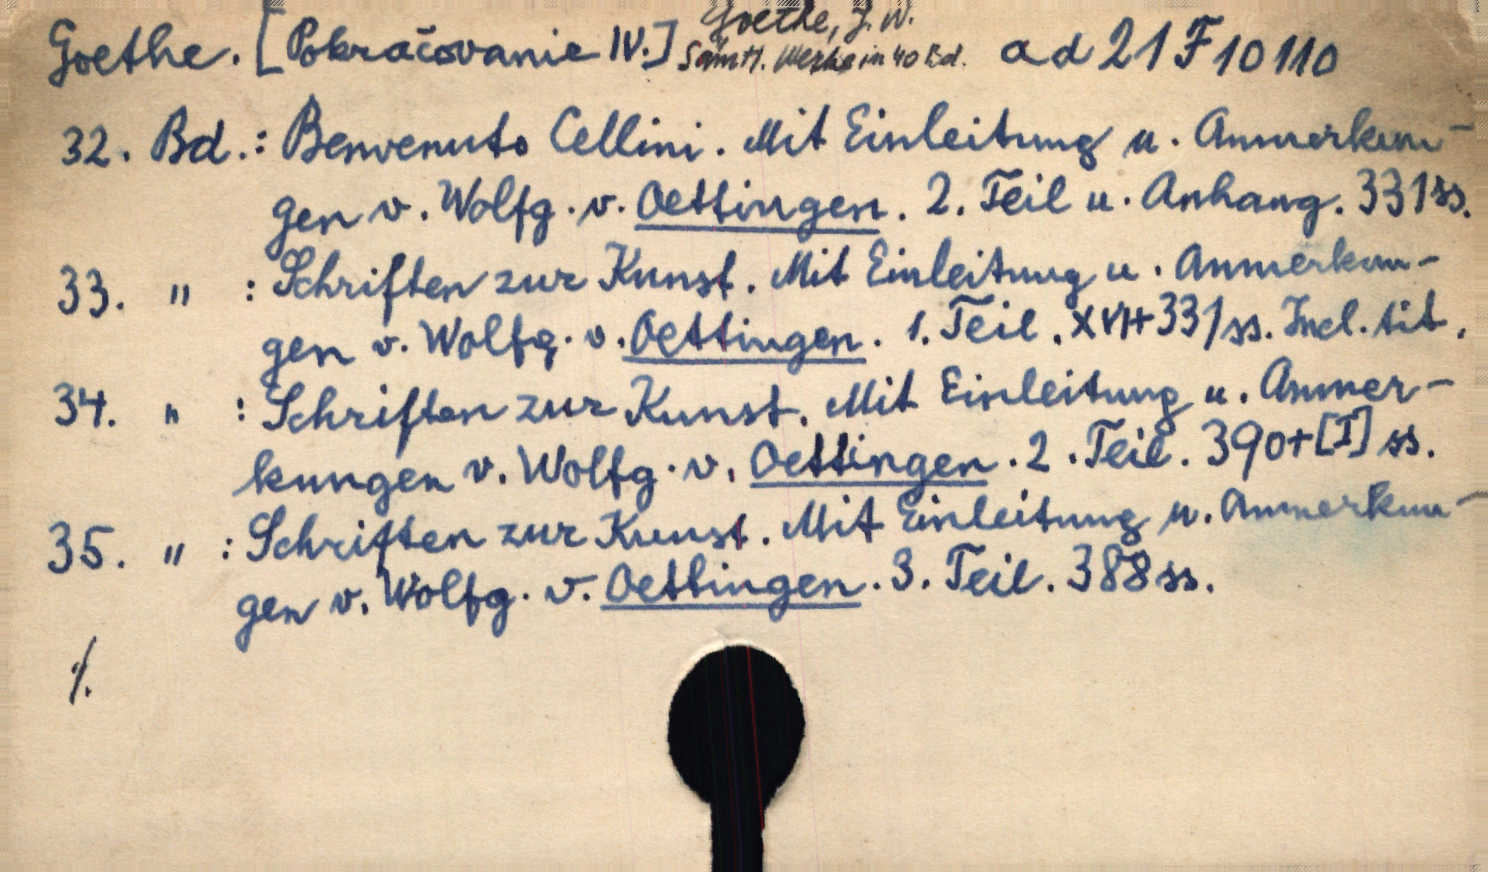 Goethe. [Pokračovanie IV.] Goethe, J. W. Sämtl. Werke in 40 Bd. ad 21 F 10110
32. Bd.: Benvenuto Cellini. Mit Einleitung u. Anmerkun-
gen v. Wolfg. v. Oettingen. 2. Teil u. Anhang. 331 ss.
33. " : Schriften zur Kunst. Mit Einleitung u. Anmerkun-
gen v. Wolfg. v. Oettingen. 1. Teil. XVI+331 ss. Incl. tit.
34. " : Schriften zur Kunst. Mit Einleitung u. Anmer-
kungen v. Wolfg. v. Oettingen. 2. Teil. 390+[I] ss.
35. " : Schriften zur Kunst. Mit Einleitung u. Anmerkun-
gen v. Wolfg. v. Oettingen. 3. Teil. 388 ss.
./.